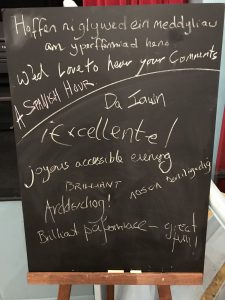 Hoffen ni glywed ein meddyliau
am y perfformiad hano
We'd Love to hear your Comments
A SPANISH HOUR
Da Iawn
¡Excellente!
joyous accessible evening
BRILLIANT
Ardderchog!
Brilliant performance - great fun!